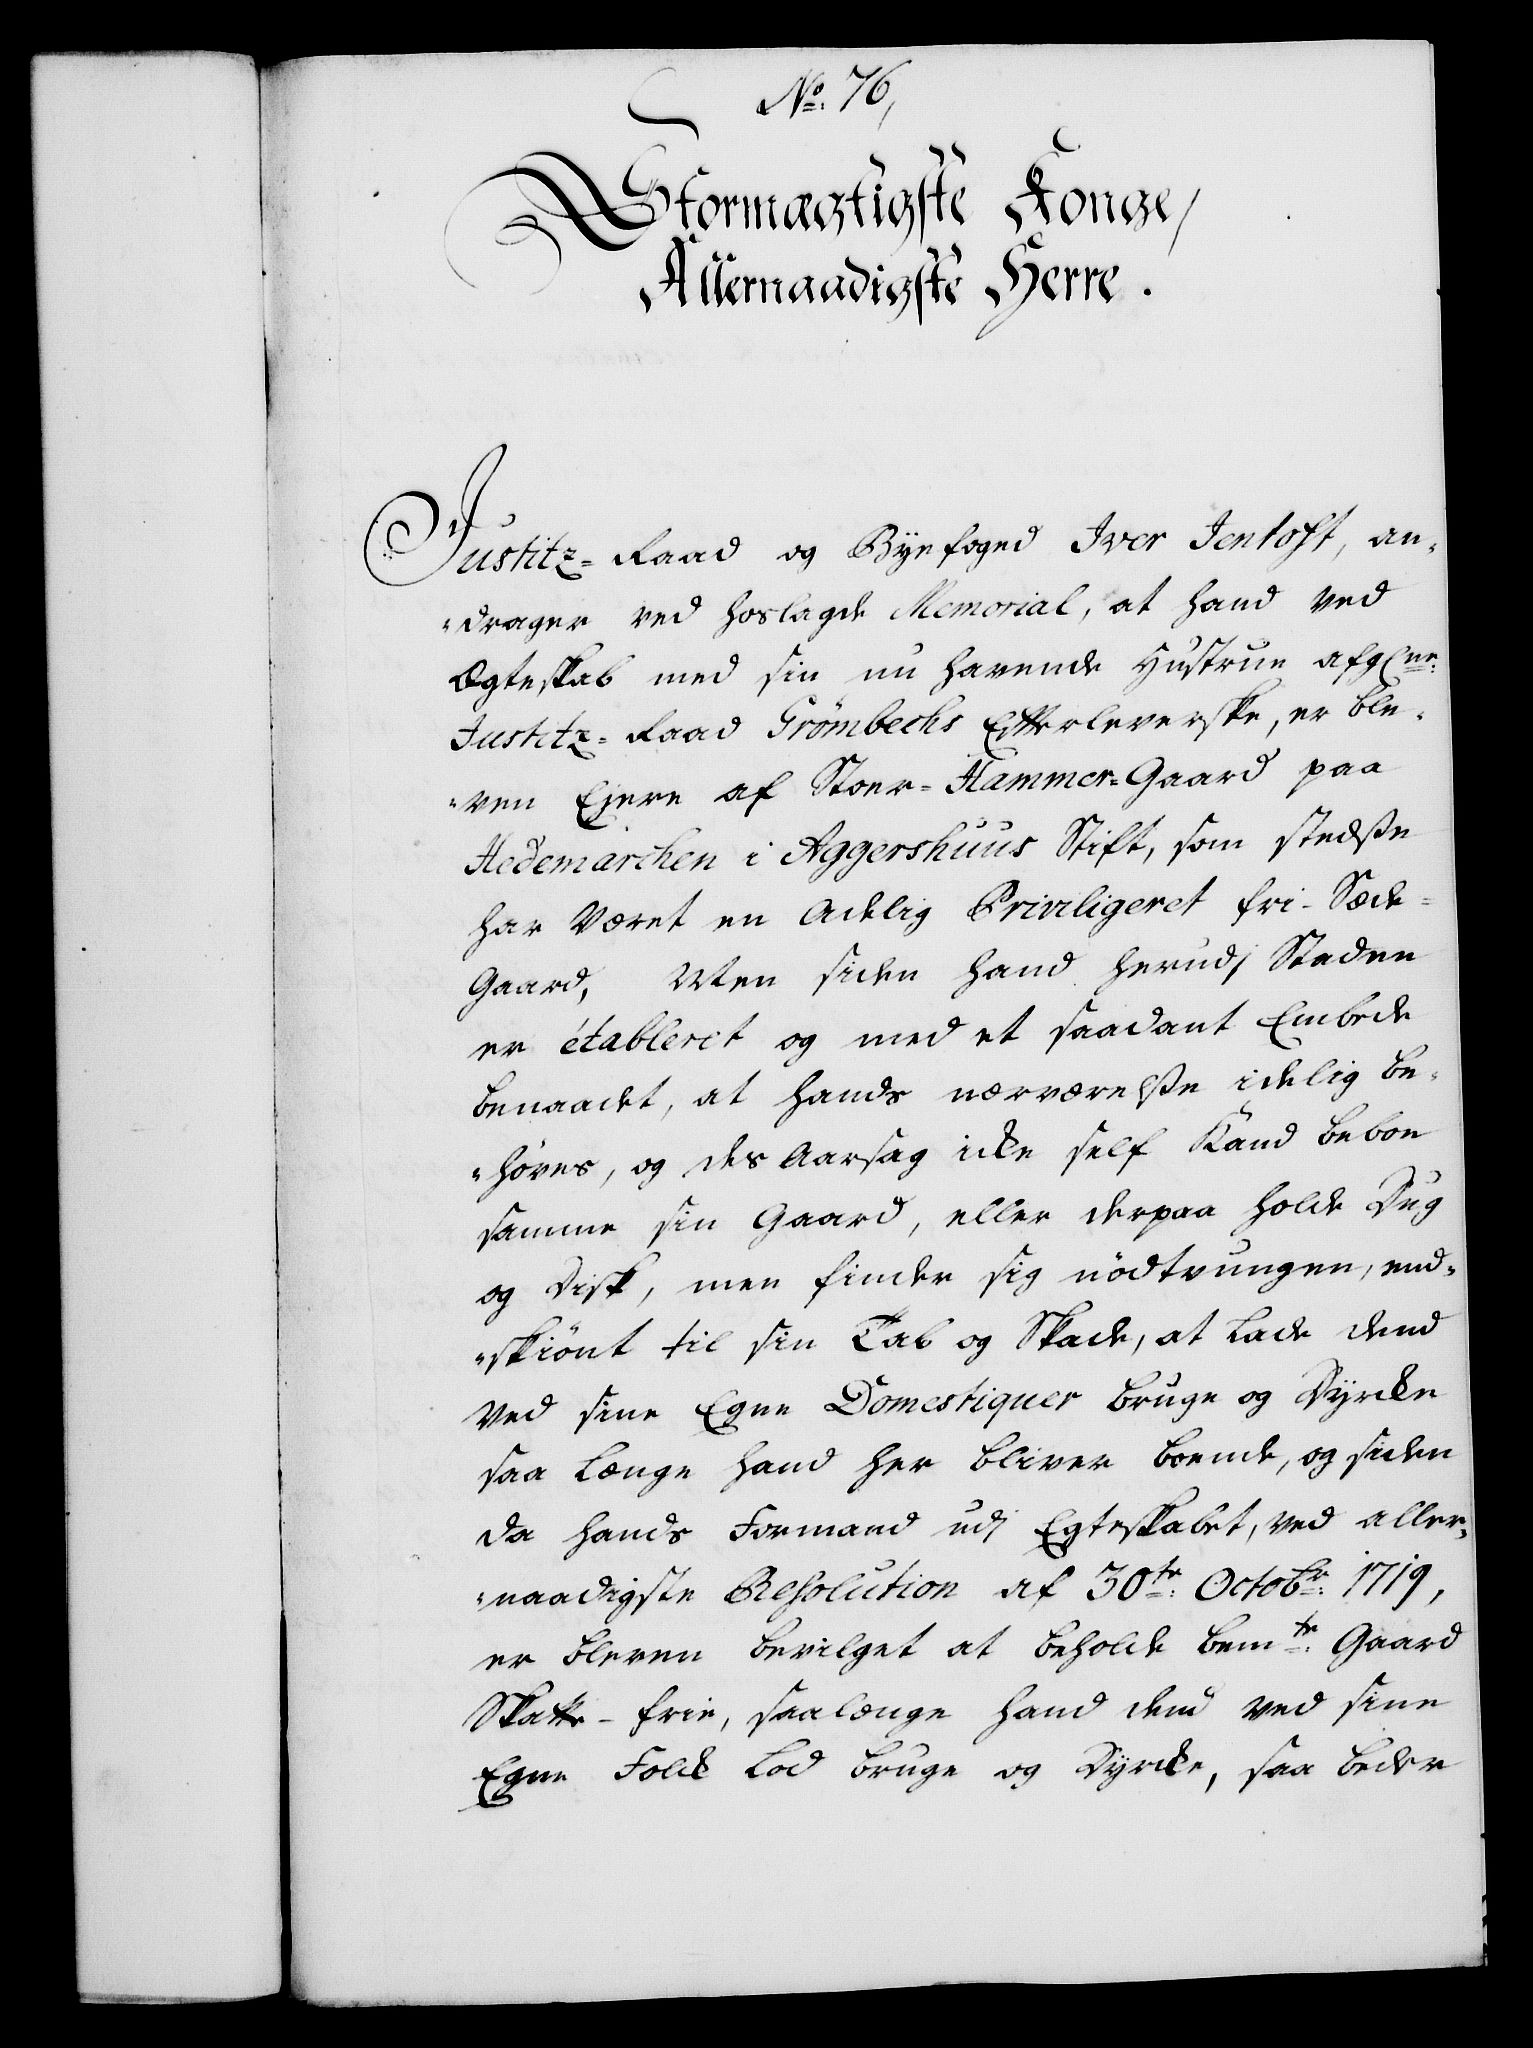 No. 76,
Stormægtigste Konge,
Allernaadigste Herre.
Justitz-Raad og Byefoged Iver Jentoft, an-
-drager ved hoslagde Memorial, at hand ved
Ægteskab med sin nu havende Hustrue afgl. ne:
Justitz-Raad Grömbechs Efterleverske, er ble-
-ven Ejere af Stoer-Hammer-Gaard paa
Hedemarchen i Aggershuus Stift, som stedsse
har været en Adelig Priviligeret fri-Sæde-
Gaard, Men siden hand herudj Staden
er étableret og med et saadant Embede
benaadet, at hands nærværelsse idelig be-
-høves, og des Aarsag icke self kand beboe
samme sin Gaard, eller derpaa holde Dug
og Disk, men finder sig nödtvungen, end-
-skiönt til sin Tab og Skade, at lade dend
ved sine Egne Domestiquer bruge og Dyrcke
saa længe hand her bliver boende, og siden
da hands Formand udj Egteskabet, ved aller-
-naadigste Resolution af 30te: Octobr: 1719,
er bleven bevilget at beholde bemte: Gaard
Skatte-frie, saalænge hand dend ved sine
Egne Folck lod bruge og Dyrcke, saa beder